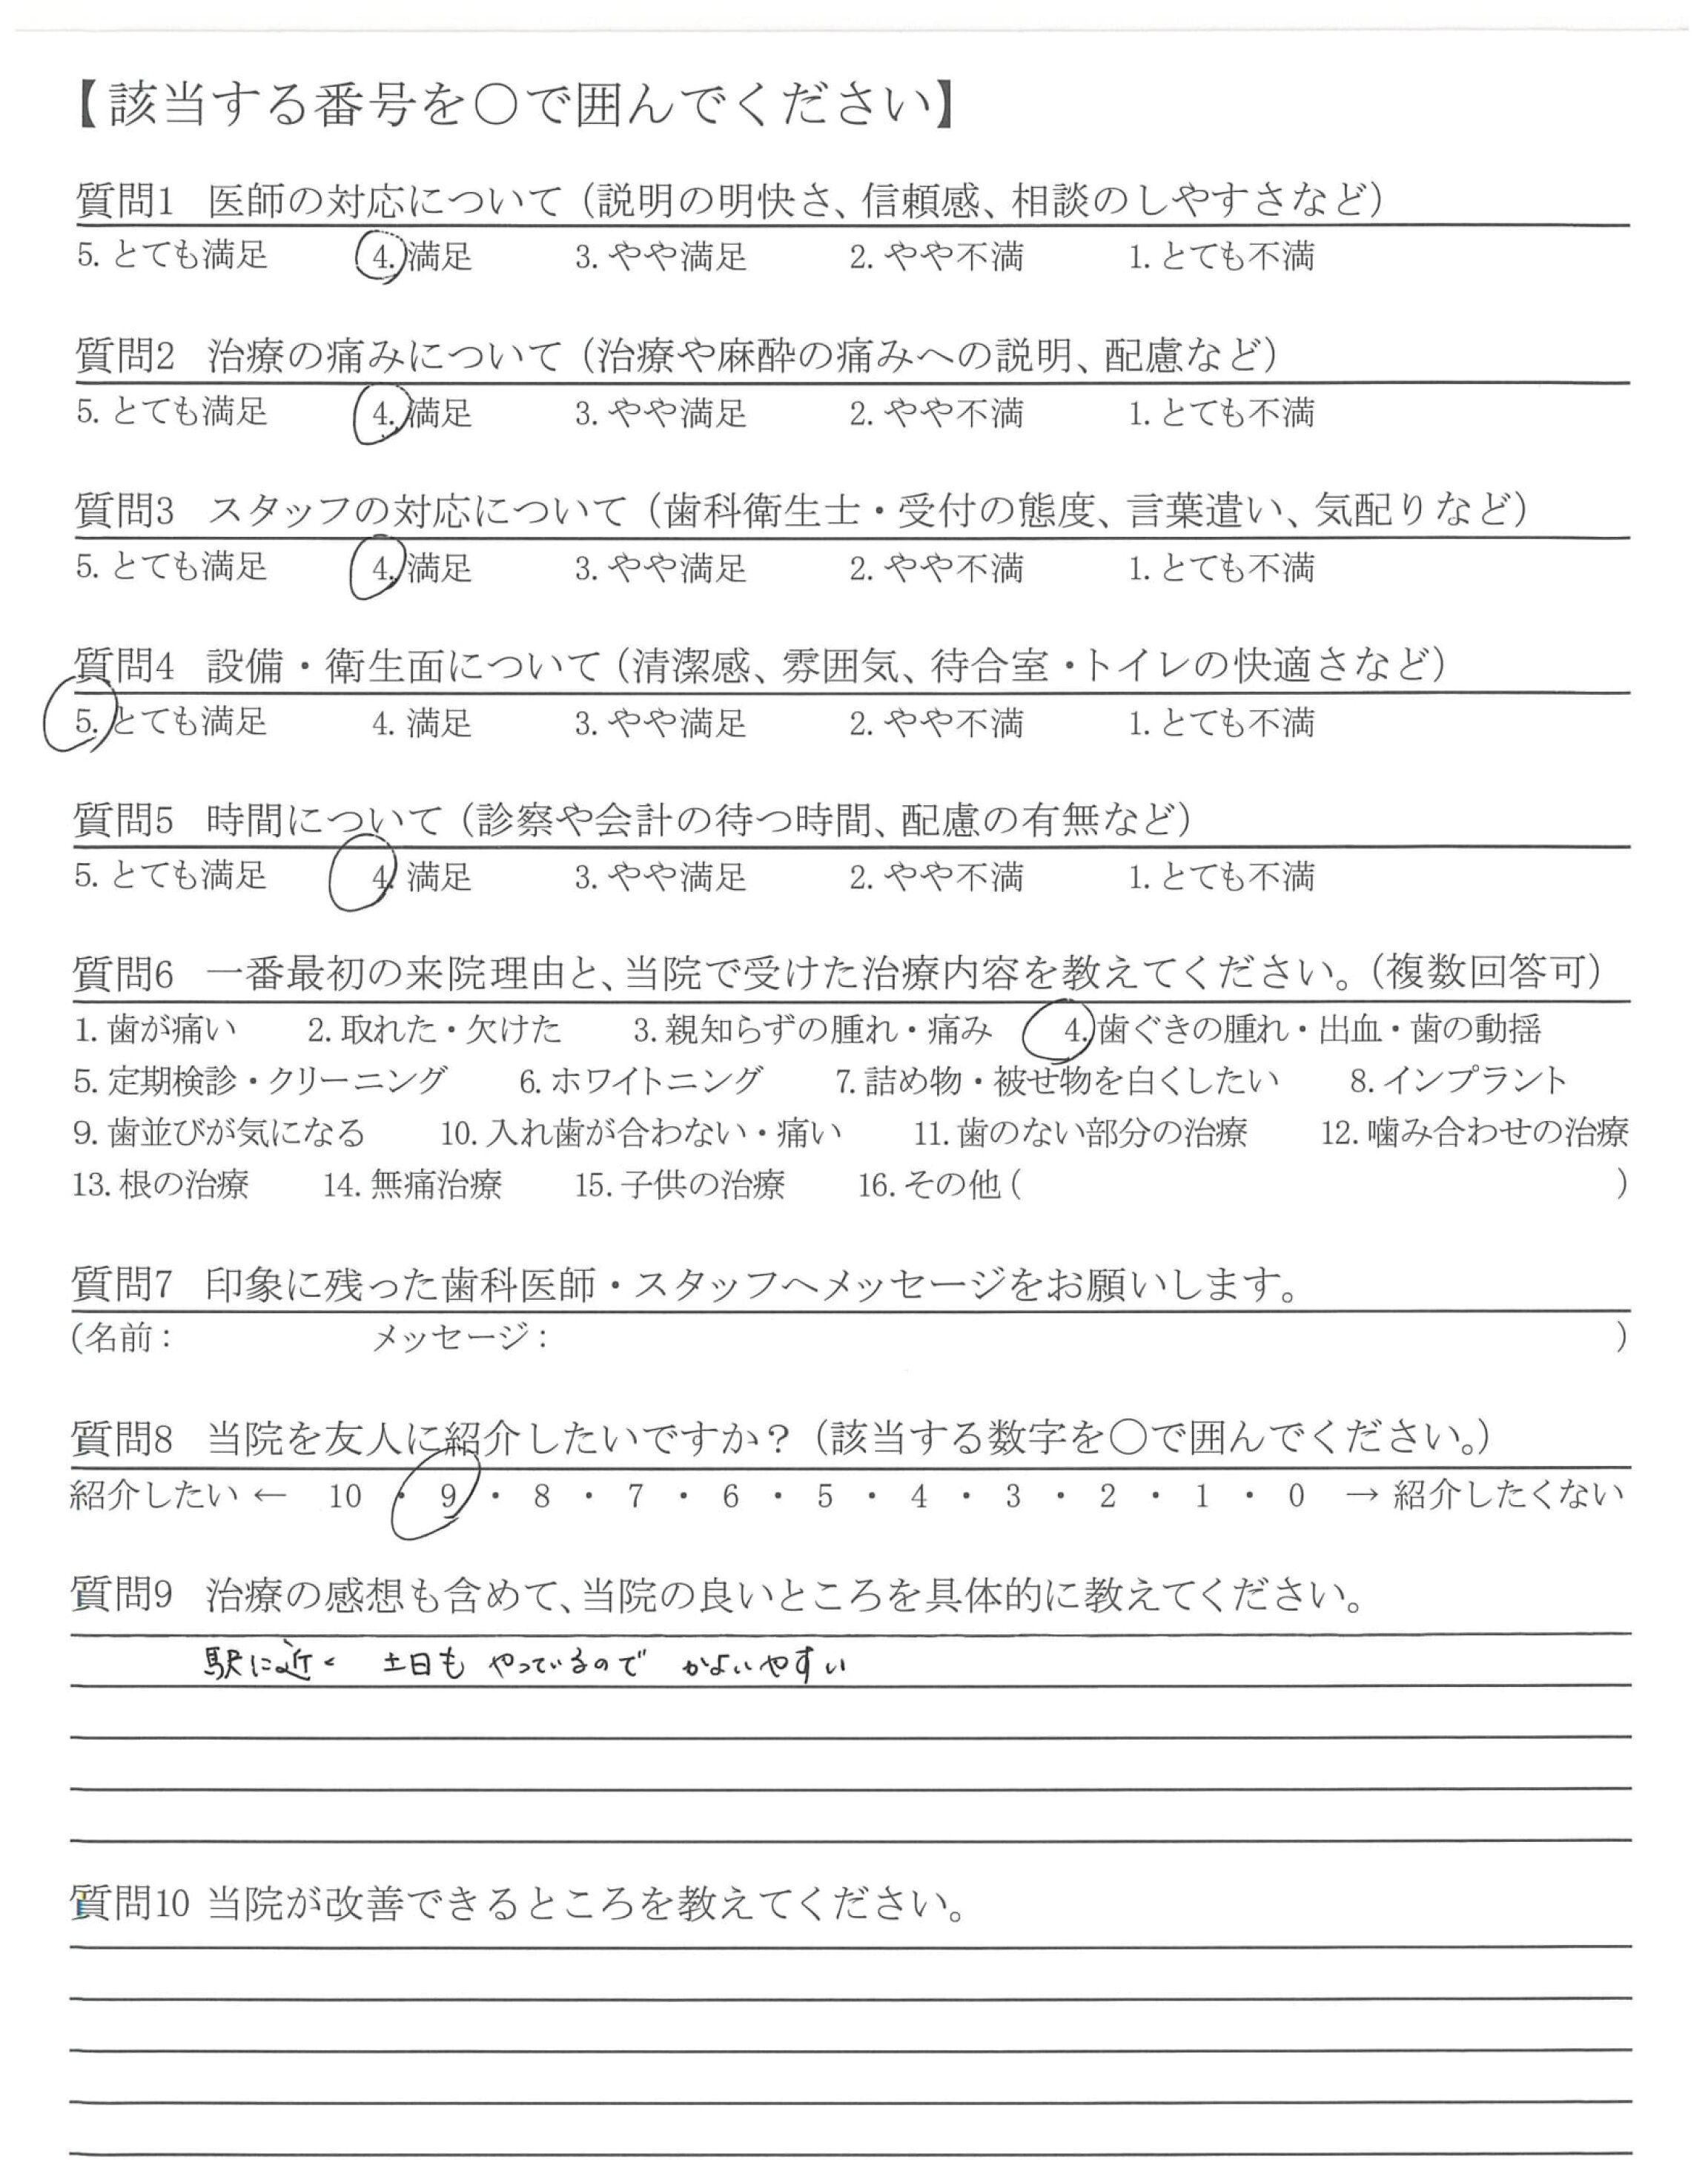 【該当する番号を○で囲んでください】
質問1 医師の対応について（説明の明快さ、信頼感、相談のしやすさなど）
5. とても満足 4. 満足 3. やや満足 2. やや不満 1. とても不満
質問2 治療の痛みについて（治療や麻酔の痛みへの説明、配慮など）
5. とても満足 4. 満足 3. やや満足 2. やや不満 1. とても不満
質問3 スタッフの対応について（歯科衛生士・受付の態度、言葉遣い、気配りなど）
5. とても満足 4. 満足 3. やや満足 2. やや不満 1. とても不満
質問4 設備・衛生面について（清潔感、雰囲気、待合室・トイレの快適さなど）
5. とても満足 4. 満足 3. やや満足 2. やや不満 1. とても不満
質問5 時間について（診察や会計の待つ時間、配慮の有無など）
5. とても満足 4. 満足 3. やや満足 2. やや不満 1. とても不満
質問6 一番最初の来院理由と、当院で受けた治療内容を教えてください。（複数回答可）
1. 歯が痛い 2. 取れた・欠けた 3. 親知らずの腫れ・痛み 4. 歯ぐきの腫れ・出血・歯の動揺
5. 定期検診・クリーニング 6. ホワイトニング 7. 詰め物・被せ物を白くしたい 8. インプラント
9. 歯並びが気になる 10. 入れ歯が合わない・痛い 11. 歯のない部分の治療 12. 噛み合わせの治療
13. 根の治療 14. 無痛治療 15. 子供の治療 16. その他（ ）
質問7 印象に残った歯科医師・スタッフへメッセージをお願いします。
（名前： メッセージ： ）
質問8 当院を友人に紹介したいですか？（該当する数字を○で囲んでください。）
紹介したい ← 10 ・ 9 ・ 8 ・ 7 ・ 6 ・ 5 ・ 4 ・ 3 ・ 2 ・ 1 ・ 0 → 紹介したくない
質問9 治療の感想も含めて、当院の良いところを具体的に教えてください。
駅に近く 土日も やっているので かよいやすい
質問10 当院が改善できるところを教えてください。